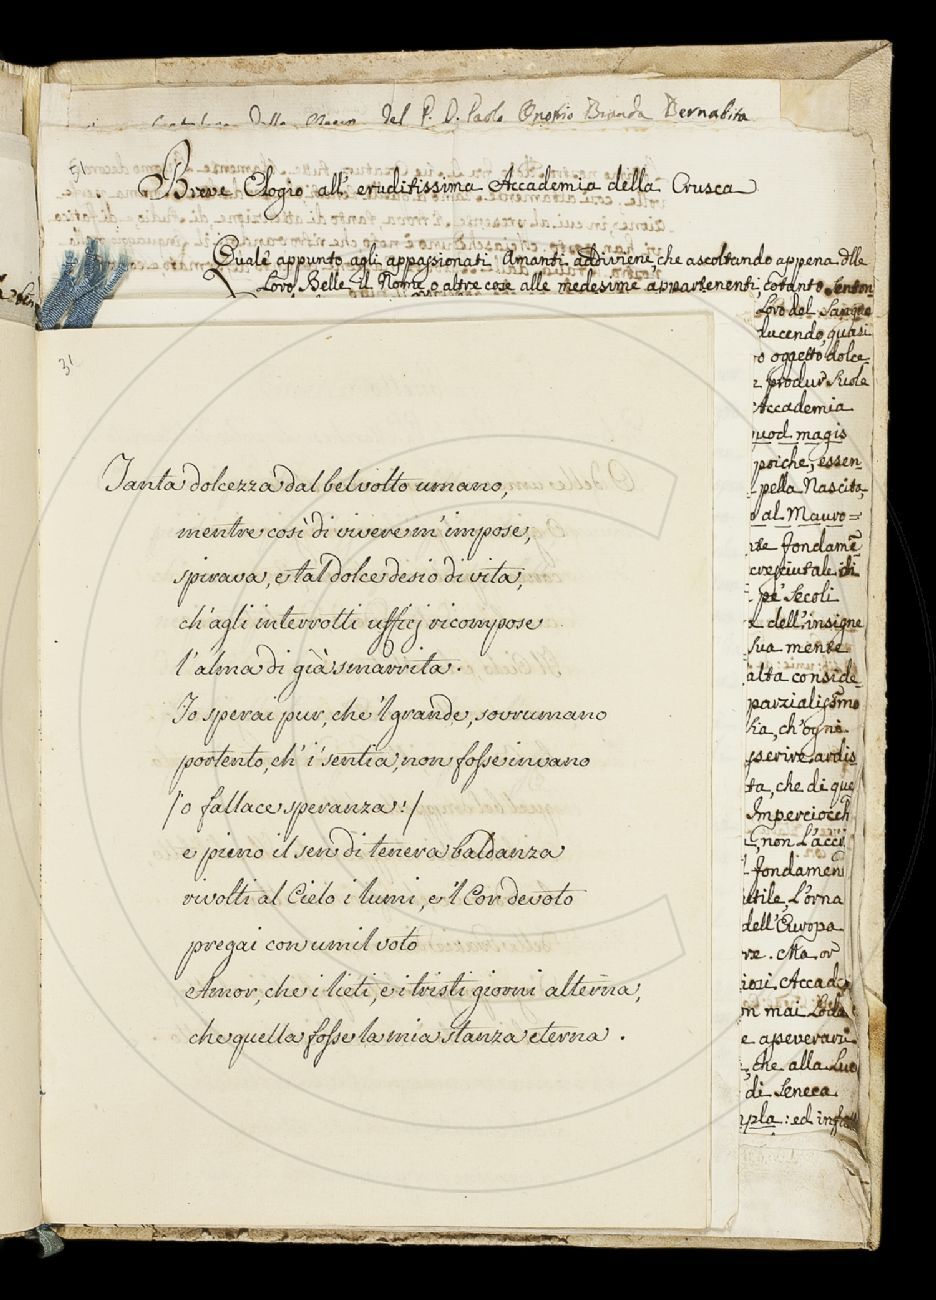 del P. D. Paolo Onofrio Branda Bernabita
51
Breve Elogio all' eruditissima Accademia della Crusca
Qual' è appunto agli appassionati Amanti addiviene, che ascoltando appena dlle
Loro Belle il Nome, o altre cose alle medesime appartenenti, cotanto senton
Loro del Sangue
ducendo, quasi
o oggetto dolce-
produr suole
Accademia
quod magis
poiche, essen-
pella Nascita,
o al Mauro=
nte fondamē
cresciutale di
pe' Secoli
dell'insigne
sua mente
alta conside-
parzialissmo
sia, ch'ogni
sserire ardis
ta, che di que
Imperciocch
non l'acci
fondamen
utile, L'orna
dell'Europa
re. Ma or
iosi Accade
on mai Loda
e asseverare
che alla Luc
di Seneca
mpla: ed infatt
31
Tanta dolcezza dal bel volto umano,
mentre così di vivere m'impose,
spirava, e tal dolce desio di vita,
ch'agli interrotti ufficj ricompose
l'alma di già smarrita.
Io sperai pur, che 'l grande, sovrumano
portento, ch'i' sentia, non fosse invano
/o fallace speranza!/
e pieno il sen di tenera baldanza
rivolti al Cielo i lumi, e 'l Cor devoto
pregai con umil voto
Amor, che i lieti, e i tristi giorni alterna,
che quella fosse la mia stanza eterna.